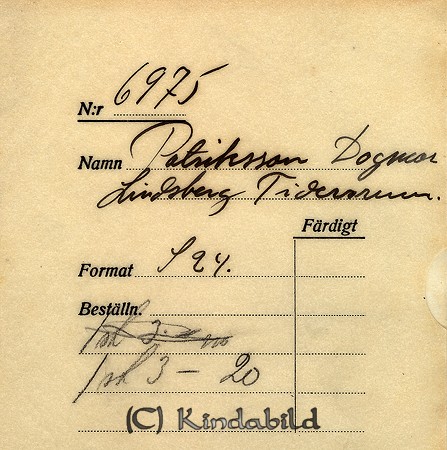 N:r 6975
Namn Patriksson Dagmar
Lindsberg Tidersrum.
Färdigt
Format 124.
Beställn.
1 st 3 - 20
(C) Kindabild